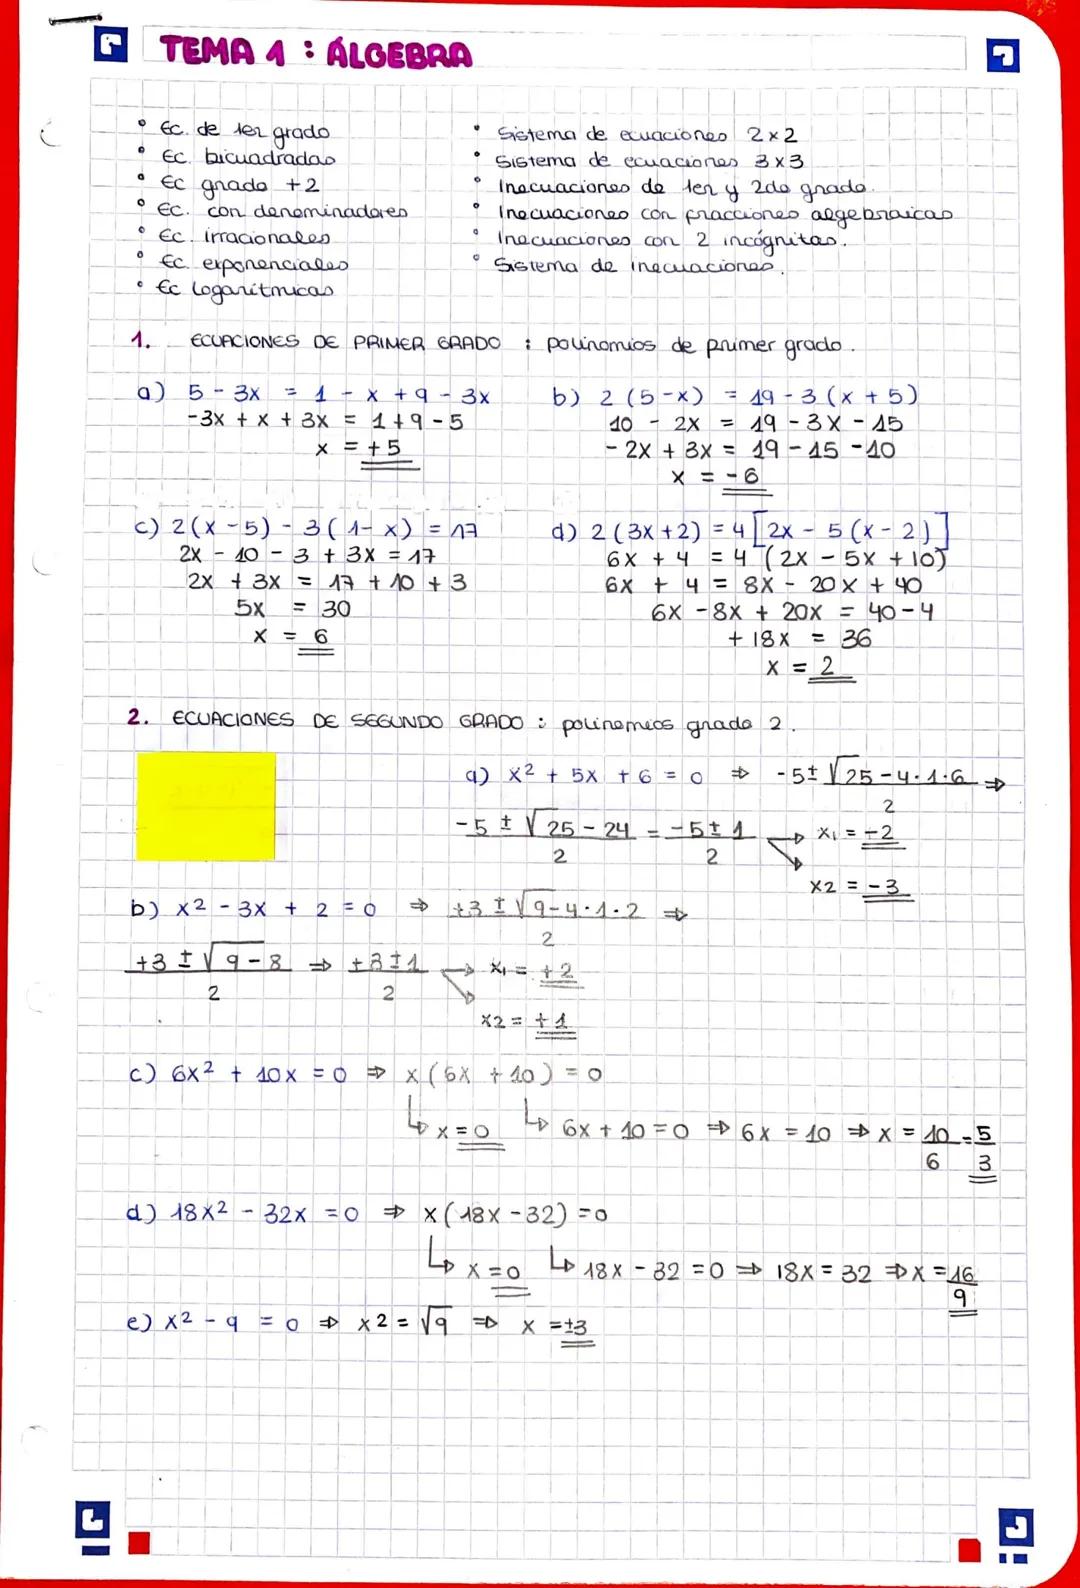 TEMA 1 : ÁLGEBRA
• Ec. de 1er grado
• Ec. bicuadradas
• Ec grado +2
• Ec. con denominadores
• Ec. irracionales
• Ec. exponenciales
• Ec logarítmicas
• Sistema de ecuaciones 2x2
• Sistema de ecuaciones 3x3
• Inecuaciones de 1er y 2do grado.
• Inecuaciones con fracciones algebraicas
• Inecuaciones con 2 incógnitas.
• Sistema de inecuaciones.
1. ECUACIONES DE PRIMER GRADO : polinomios de primer grado.
a) 5 - 3x = 1 - x + 9 - 3x
-3x + x + 3x = 1 + 9 - 5
x = +5
b) 2 (5 - x) = 19 - 3 (x + 5)
10 - 2x = 19 - 3x - 15
- 2x + 3x = 19 - 15 - 10
x = - 6
c) 2(x - 5) - 3(1 - x) = 17
2x - 10 - 3 + 3x = 17
2x + 3x = 17 + 10 + 3
5x = 30
x = 6
d) 2 (3x + 2) = 4 [2x - 5 (x - 2)]
6x + 4 = 4 (2x - 5x + 10)
6x + 4 = 8x - 20x + 40
6x - 8x + 20x = 40 - 4
+ 18x = 36
x = 2
2. ECUACIONES DE SEGUNDO GRADO : polinomios grado 2.
a) x² + 5x + 6 = 0 ⇒ -5 ± √25 - 4·1·6 ⇒
2
-5 ± √25 - 24 = -5 ± 1 → x1 = -2
2 2
x2 = -3
b) x² - 3x + 2 = 0 ⇒ +3 ± √9 - 4·1·2 ⇒
2
+3 ± √9 - 8 ⇒ +3 ± 1 → x1 = +2
2 2
x2 = +1
c) 6x² + 10x = 0 ⇒ x (6x + 10) = 0
↳ x = 0 ↳ 6x + 10 = 0 ⇒ 6x = 10 ⇒ x = 10 = 5
6 3
d) 18x² - 32x = 0 ⇒ x (18x - 32) = 0
↳ x = 0 ↳ 18x - 32 = 0 ⇒ 18x = 32 ⇒ x = 16
9
e) x² - 9 = 0 ⇒ x2 = √9 ⇒ x = ±3